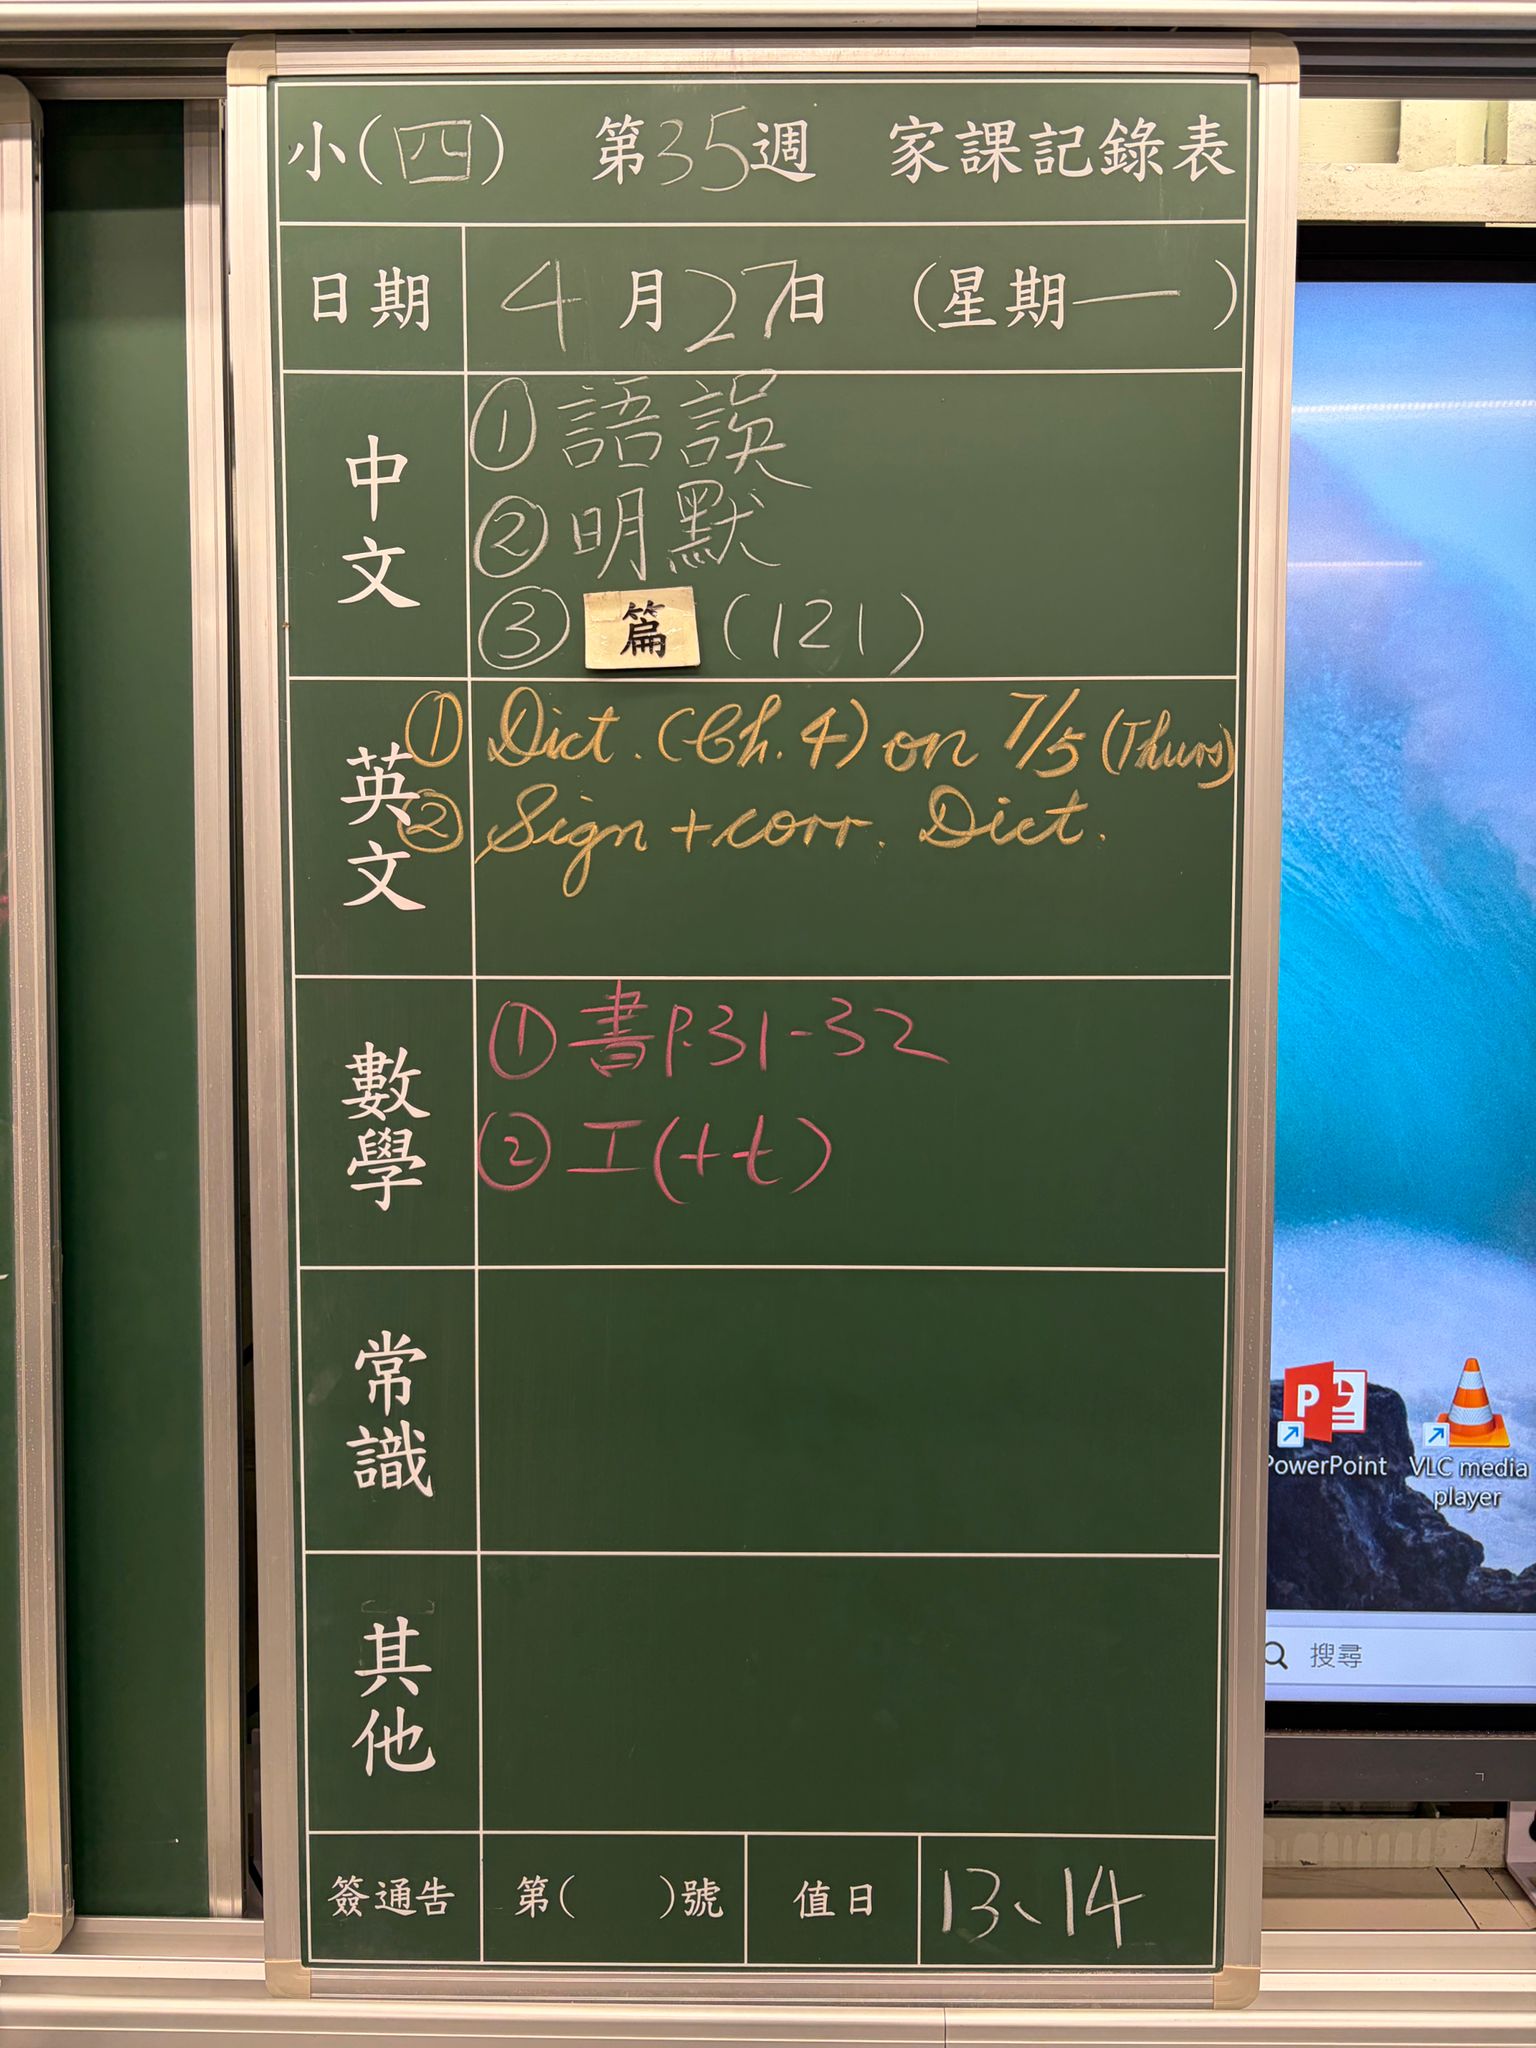 小(四) 第35週 家課記錄表
日期 4月27日 (星期一)
中文
①語誤
②明默
③篇(121)
英文
① Dict. (Ch. 4) on 7/5 (Thurs)
② Sign + corr. Dict.
數學
①書P.31-32
②工(十七)
常識
其他
簽通告 第( )號 值日 13、14
PowerPoint
VLC media player
搜尋